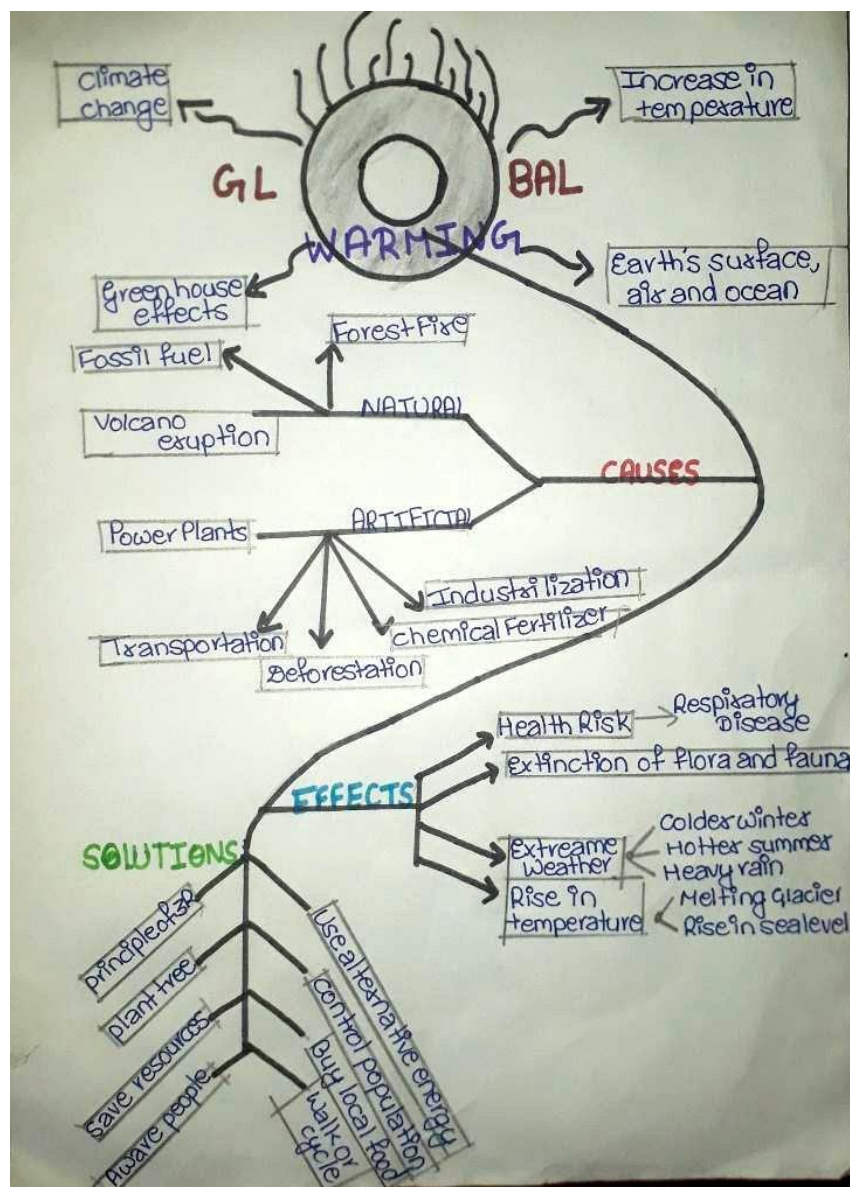 Climate
change
Increase in
temperature
GL BAL
WARMING
Earth's surface,
air and ocean
Greenhouse
effects
Forest Fire
Fossil fuel
NATURAL
Volcano
eruption
CAUSES
ARTIFICIAL
Power Plants
Industrilization
Chemical Fertilizer
Transportation
Deforestation
Health Risk
Respiratory
Disease
Extinction of flora and fauna
EFFECTS
Extreame
weather
Colder winter
Hotter summer
Heavy rain
Rise in
temperature
Melting Glacier
Rise in sealevel
SOLUTIONS
principle of 3R
plant tree
save resources
Aware people
Use alternative energy
control population
Buy local food
walk or
cycle